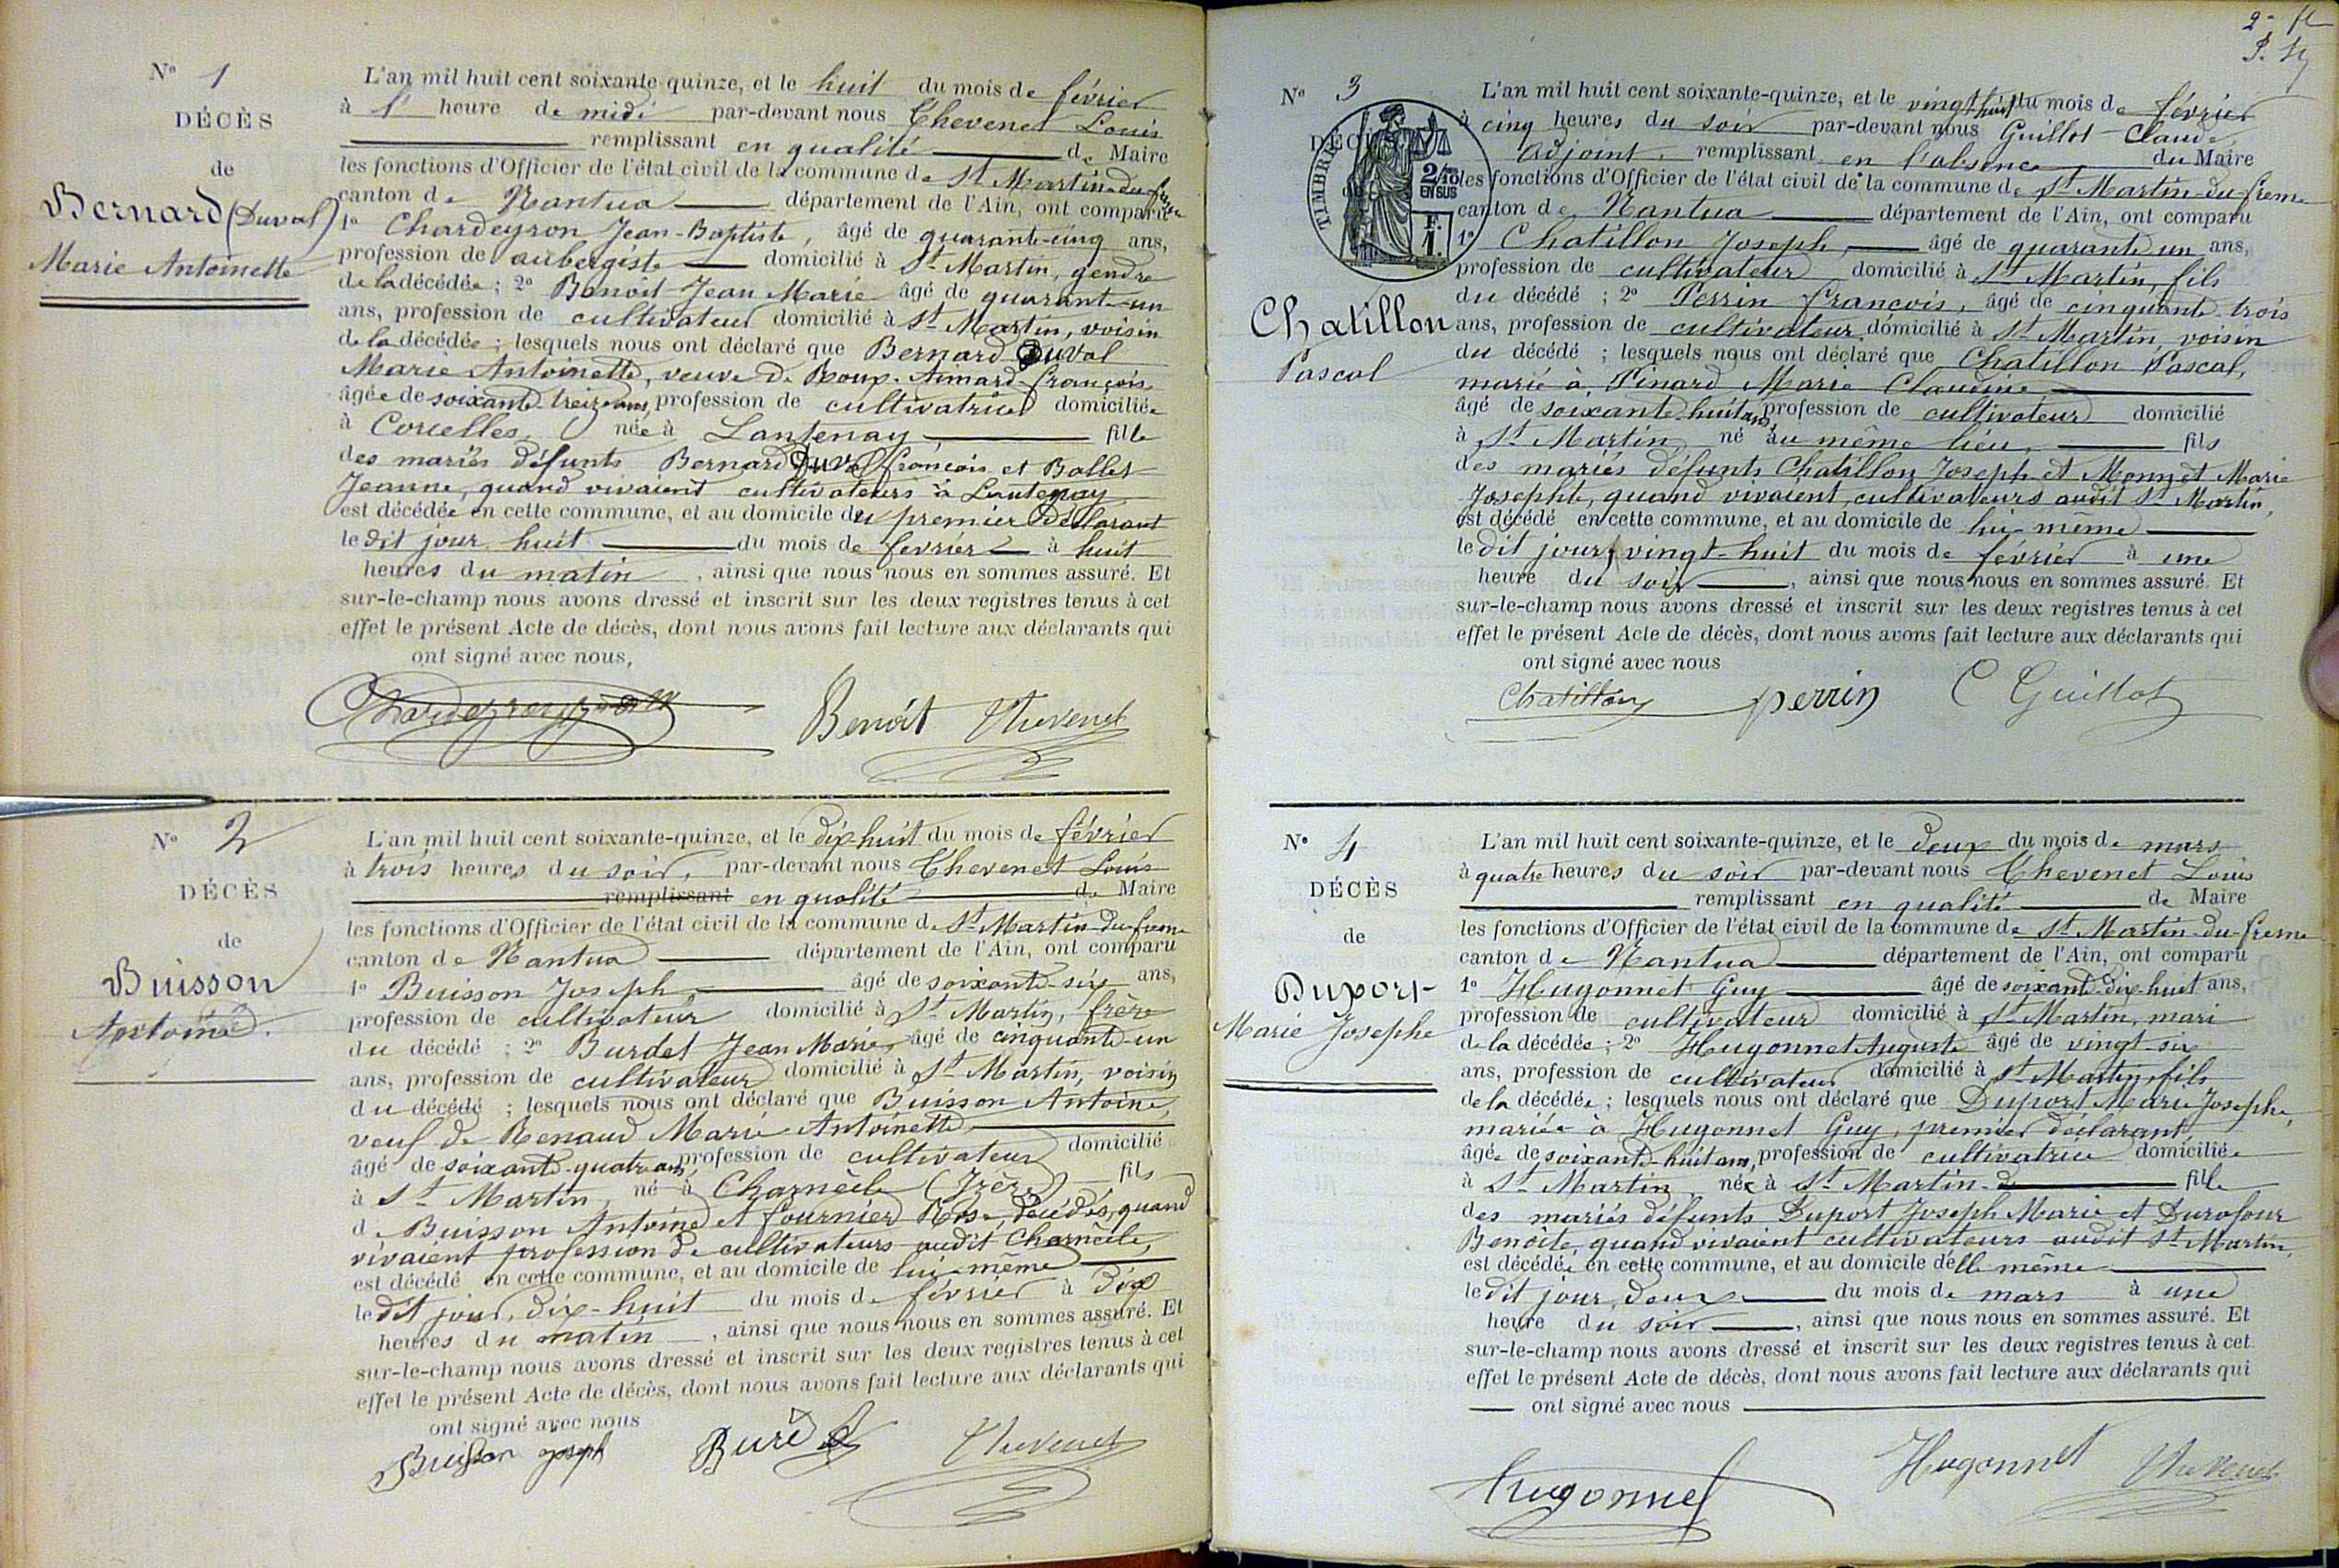 N° 1
DÉCÈS
de
Bernard (Duval)
Marie Antoinette
L'an mil huit cent soixante-quinze, et le huit du mois de février
à 1 heure de midi par-devant nous Chevenet Louis
remplissant en qualité de Maire
les fonctions d'Officier de l'état civil de la commune de St Martin-du-fresne
canton de Nantua département de l'Ain, ont comparu
1° Chardeyron Jean-Baptiste, âgé de quarante-cinq ans,
profession de aubergiste domicilié à St Martin, gendre
de la décédée ; 2° Benoit Jean Marie âgé de quarante-un
ans, profession de cultivateur domicilié à St Martin, voisin
de la décédée ; lesquels nous ont déclaré que Bernard Duval
Marie Antoinette, veuve de Roux-Aimard-françois
âgée de soixante-treize ans, profession de cultivatrice domiciliée
à Corcelles, née à Lantenay fille
des mariés défunts Bernard Duval françois et Ballet
Jeanne, quand vivaient cultivateurs à Lantenay
est décédée en cette commune, et au domicile du premier déclarant
le dit jour huit du mois de fevrier à huit
heures du matin, ainsi que nous nous en sommes assuré. Et
sur-le-champ nous avons dressé et inscrit sur les deux registres tenus à cet
effet le présent Acte de décès, dont nous avons fait lecture aux déclarants qui
ont signé avec nous,
Benoit Chevenet
N° 2
DÉCÈS
de
Buisson
Antoine.
L'an mil huit cent soixante-quinze, et le dix-huit du mois de février
à trois heures du soir, par-devant nous Chevenet Louis
remplissant en qualité de Maire
les fonctions d'Officier de l'état civil de la commune de St Martin-du-fresne
canton de Nantua département de l'Ain, ont comparu
1° Buisson Joseph, âgé de soixante-six ans,
profession de cultivateur domicilié à St Martin, frère
du décédé ; 2° Burdet Jean Marie, âgé de cinquante-un
ans, profession de cultivateur domicilié à St Martin, voisin
du décédé ; lesquels nous ont déclaré que Buisson Antoine,
veuf de Renaud Marie Antoinette
âgé de soixante-quatre ans, profession de cultivateur domicilié
à St Martin, né à Charnècle (Isère) fils
de Buisson Antoine et fournier Rose décédés, quand
vivaient profession de cultivateurs audit Charnècle,
est décédé en cette commune, et au domicile de lui-même
le dit jour, dix-huit du mois de février à dix
heures du matin, ainsi que nous nous en sommes assuré. Et
sur-le-champ nous avons dressé et inscrit sur les deux registres tenus à cet
effet le présent Acte de décès, dont nous avons fait lecture aux déclarants qui
ont signé avec nous
Buisson joseph Burdet Chevenet
N° 3
DÉCÈS
TIMBRE
2/10es
EN SUS
F.
1.
Chatillon
Pascal
L'an mil huit cent soixante-quinze, et le vingt huit du mois de février
à cinq heures du soir par-devant nous Guillot Claude
adjoint, remplissant en l'absence du Maire
les fonctions d'Officier de l'état civil de la commune de St Martin-du-fresne
canton de Nantua département de l'Ain, ont comparu
1° Chatillon Joseph, âgé de quarante un ans,
profession de cultivateur domicilié à St Martin, fils
du décédé ; 2° Perrin françois, âgé de cinquante-trois
ans, profession de cultivateur domicilié à St Martin, voisin
du décédé ; lesquels nous ont déclaré que Chatillon Pascal,
marié à Pinard Marie Claudine
âgé de soixante-huit ans, profession de cultivateur domicilié
à St Martin né au même lieu, fils
des mariés défunts Chatillon Joseph et Monnet Marie
Josephte, quand vivaient, cultivateurs audit St Martin,
est décédé en cette commune, et au domicile de lui-même
le dit jour, vingt-huit du mois de février à une
heure du soir, ainsi que nous nous en sommes assuré. Et
sur-le-champ nous avons dressé et inscrit sur les deux registres tenus à cet
effet le présent Acte de décès, dont nous avons fait lecture aux déclarants qui
ont signé avec nous
Chatillon perrin C Guillot
N° 4
DÉCÈS
de
Duport
Marie Josephe
L'an mil huit cent soixante-quinze, et le deux du mois de mars
à quatre heures du soir par-devant nous Chevenet Louis
remplissant en qualité de Maire
les fonctions d'Officier de l'état civil de la commune de St Martin-du-fresne
canton de Nantua département de l'Ain, ont comparu
1° Hugonnet Guy âgé de soixante-dix-huit ans,
profession de cultivateur domicilié à St Martin, mari
de la décédée ; 2° Hugonnet Auguste âgé de vingt-six
ans, profession de cultivateur domicilié à St Martin, fils
de la décédée ; lesquels nous ont déclaré que Duport Marie Josephe,
mariée à Hugonnet Guy, premier déclarant
âgée de soixante-huit ans, profession de cultivatrice domiciliée
à St Martin née à St Martin fille
des mariés défunts Duport Joseph Marie et Durafour
Benoite, quand vivaient cultivateurs audit St Martin,
est décédée en cette commune, et au domicile d'elle même
le dit jour, deux du mois de mars à une
heure du soir, ainsi que nous nous en sommes assuré. Et
sur-le-champ nous avons dressé et inscrit sur les deux registres tenus à cet
effet le présent Acte de décès, dont nous avons fait lecture aux déclarants qui
ont signé avec nous
hugonnet Hugonnet Chevenet